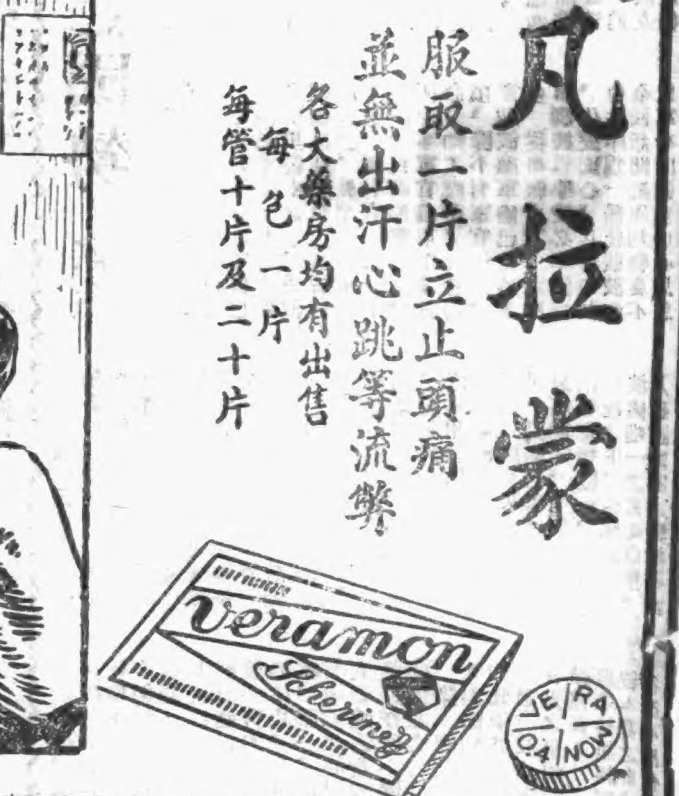 凡拉蒙
服取一片立止頭痛
並無出汗心跳等流弊
各大藥房均有出售
每包一片
每管十片及二十片
veramon
Schering
VE RA
0.4 NOW